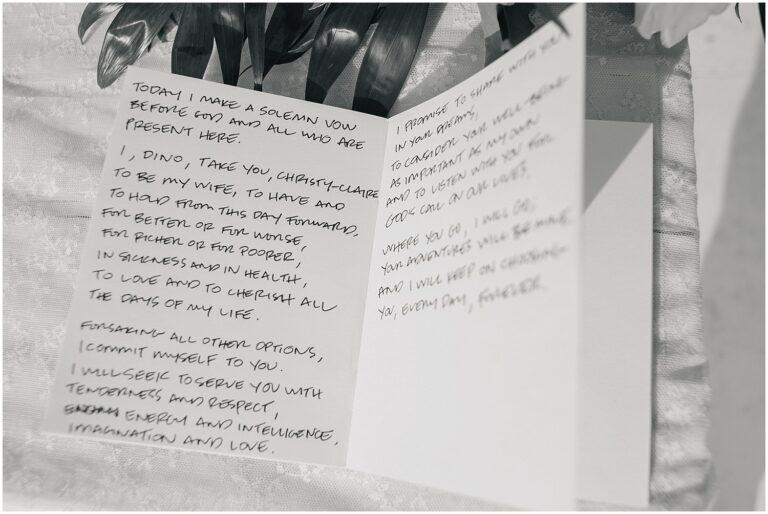 TODAY I MAKE A SOLEMN VOW
BEFORE GOD AND ALL WHO ARE
PRESENT HERE.
I, DINO, TAKE YOU, CHRISTY-CLAIRE
TO BE MY WIFE, TO HAVE AND
TO HOLD FROM THIS DAY FORWARD,
FOR BETTER OR FOR WORSE,
FOR RICHER OR FOR POORER,
IN SICKNESS AND IN HEALTH,
TO LOVE AND TO CHERISH ALL
THE DAYS OF MY LIFE.
FORSAKING ALL OTHER OPTIONS,
I COMMIT MYSELF TO YOU.
I WILL SEEK TO SERVE YOU WITH
TENDERNESS AND RESPECT,
ENERGY AND INTELLIGENCE,
IMAGINATION AND LOVE.
I PROMISE TO SHARE WITH YOU
IN YOUR DREAMS,
TO CONSIDER YOUR WELL-BEING
AS IMPORTANT AS MY OWN
AND TO LISTEN WITH YOU FOR
GOD'S CALL ON OUR LIVES.
WHERE YOU GO, I WILL GO;
YOUR ADVENTURES WILL BE MINE
AND I WILL KEEP ON CHOOSING
YOU, EVERY DAY, FOREVER.